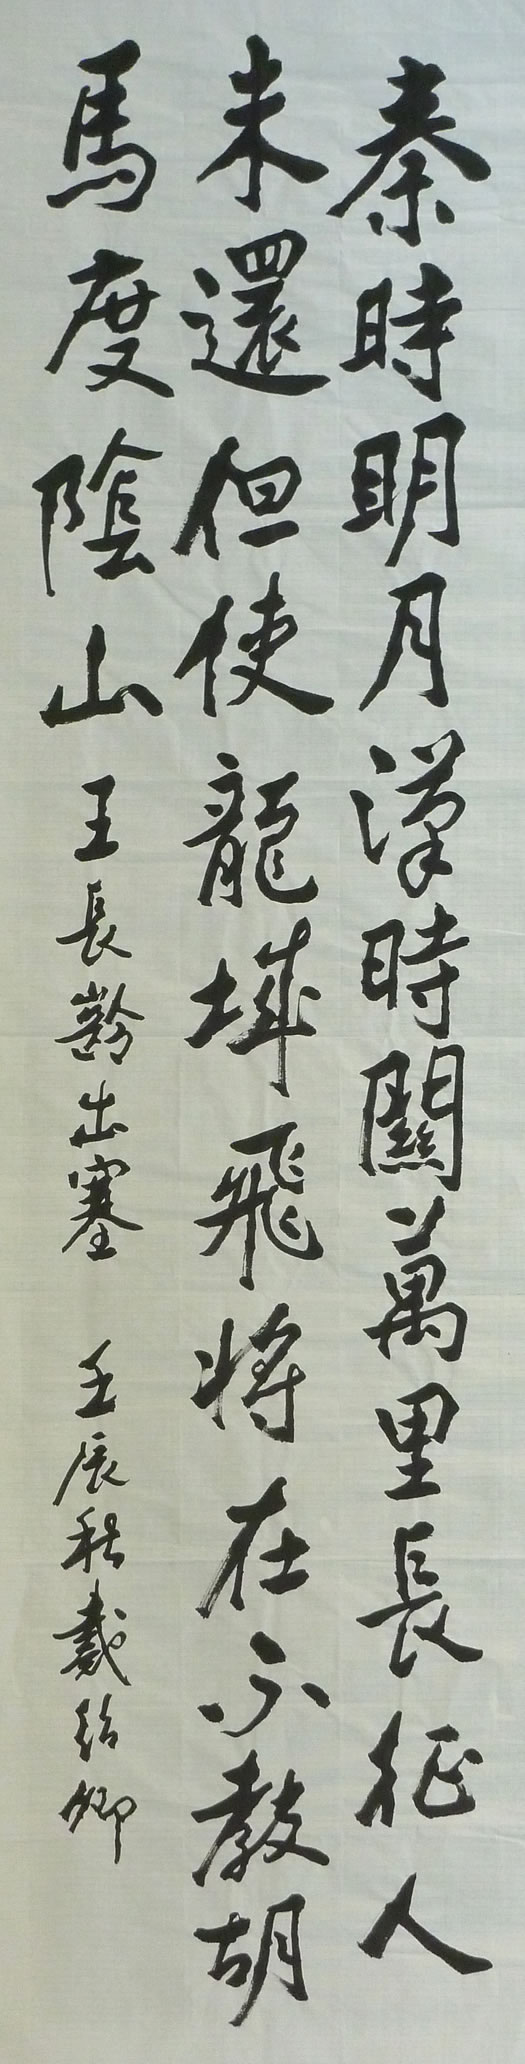 秦時明月漢時關萬里長征人
未還但使龍城飛將在不教胡
馬度陰山 王長齡出塞 壬辰秋戴紹卿